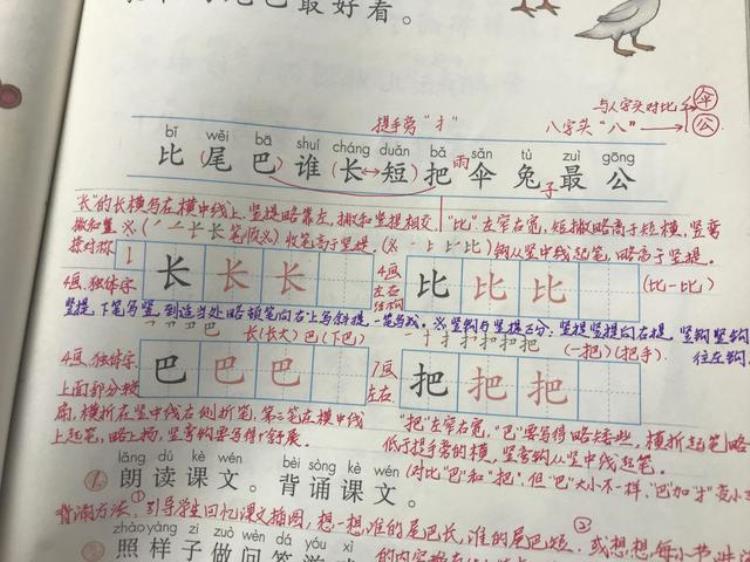 最好看。
与人字头对比 伞
提手旁“扌” 八字头“八” 公
bǐ wěi bā shuí cháng duǎn bǎ sǎn tù zuì gōng
比(尾巴)谁(长↔短)把雨伞兔子最公
“长”的长横写在横中线上,竖提略靠左,撇和竖提相交。“比”左窄右宽,短撇略高于短横,竖弯
撇和竖 长 长 笔顺 收笔高于竖提。钩从竖中线起笔,略高于竖提。
捺对称
4画.独体字 长长长 4画 左右结构 比比比 (比一比)
竖提 下笔写竖,到适当处略顿笔向右上写斜提,一笔写成。※竖钩与竖提区分:竖提竖提向右提 竖钩竖钩
往左钩
长(长大) 巴(下巴) (一把)(把手)
4画.独体字 巴巴巴 7画 左右 把把把
上面部分
横折在竖中线右侧折笔,第二笔在横中线
上起笔,略上扬,竖弯钩要写得舒展。
“把”左窄右宽,“巴”要写得略矮些,横折起笔略
低于提手旁的横,竖弯钩从竖中线起笔。
(对比“巴”和“把”,但“巴”大小不一样,“巴”加“扌”变小
lǎng dú kè wén bèi sòng kè wén
1. 朗读课文。背诵课文。
背诵方法:①引导学生回忆课文插图,想一想谁的尾巴长,谁的尾巴短.②或想想每小节
zhào yàng zi zuò wèn dá yóu xì
照样子做问答游戏
的内容